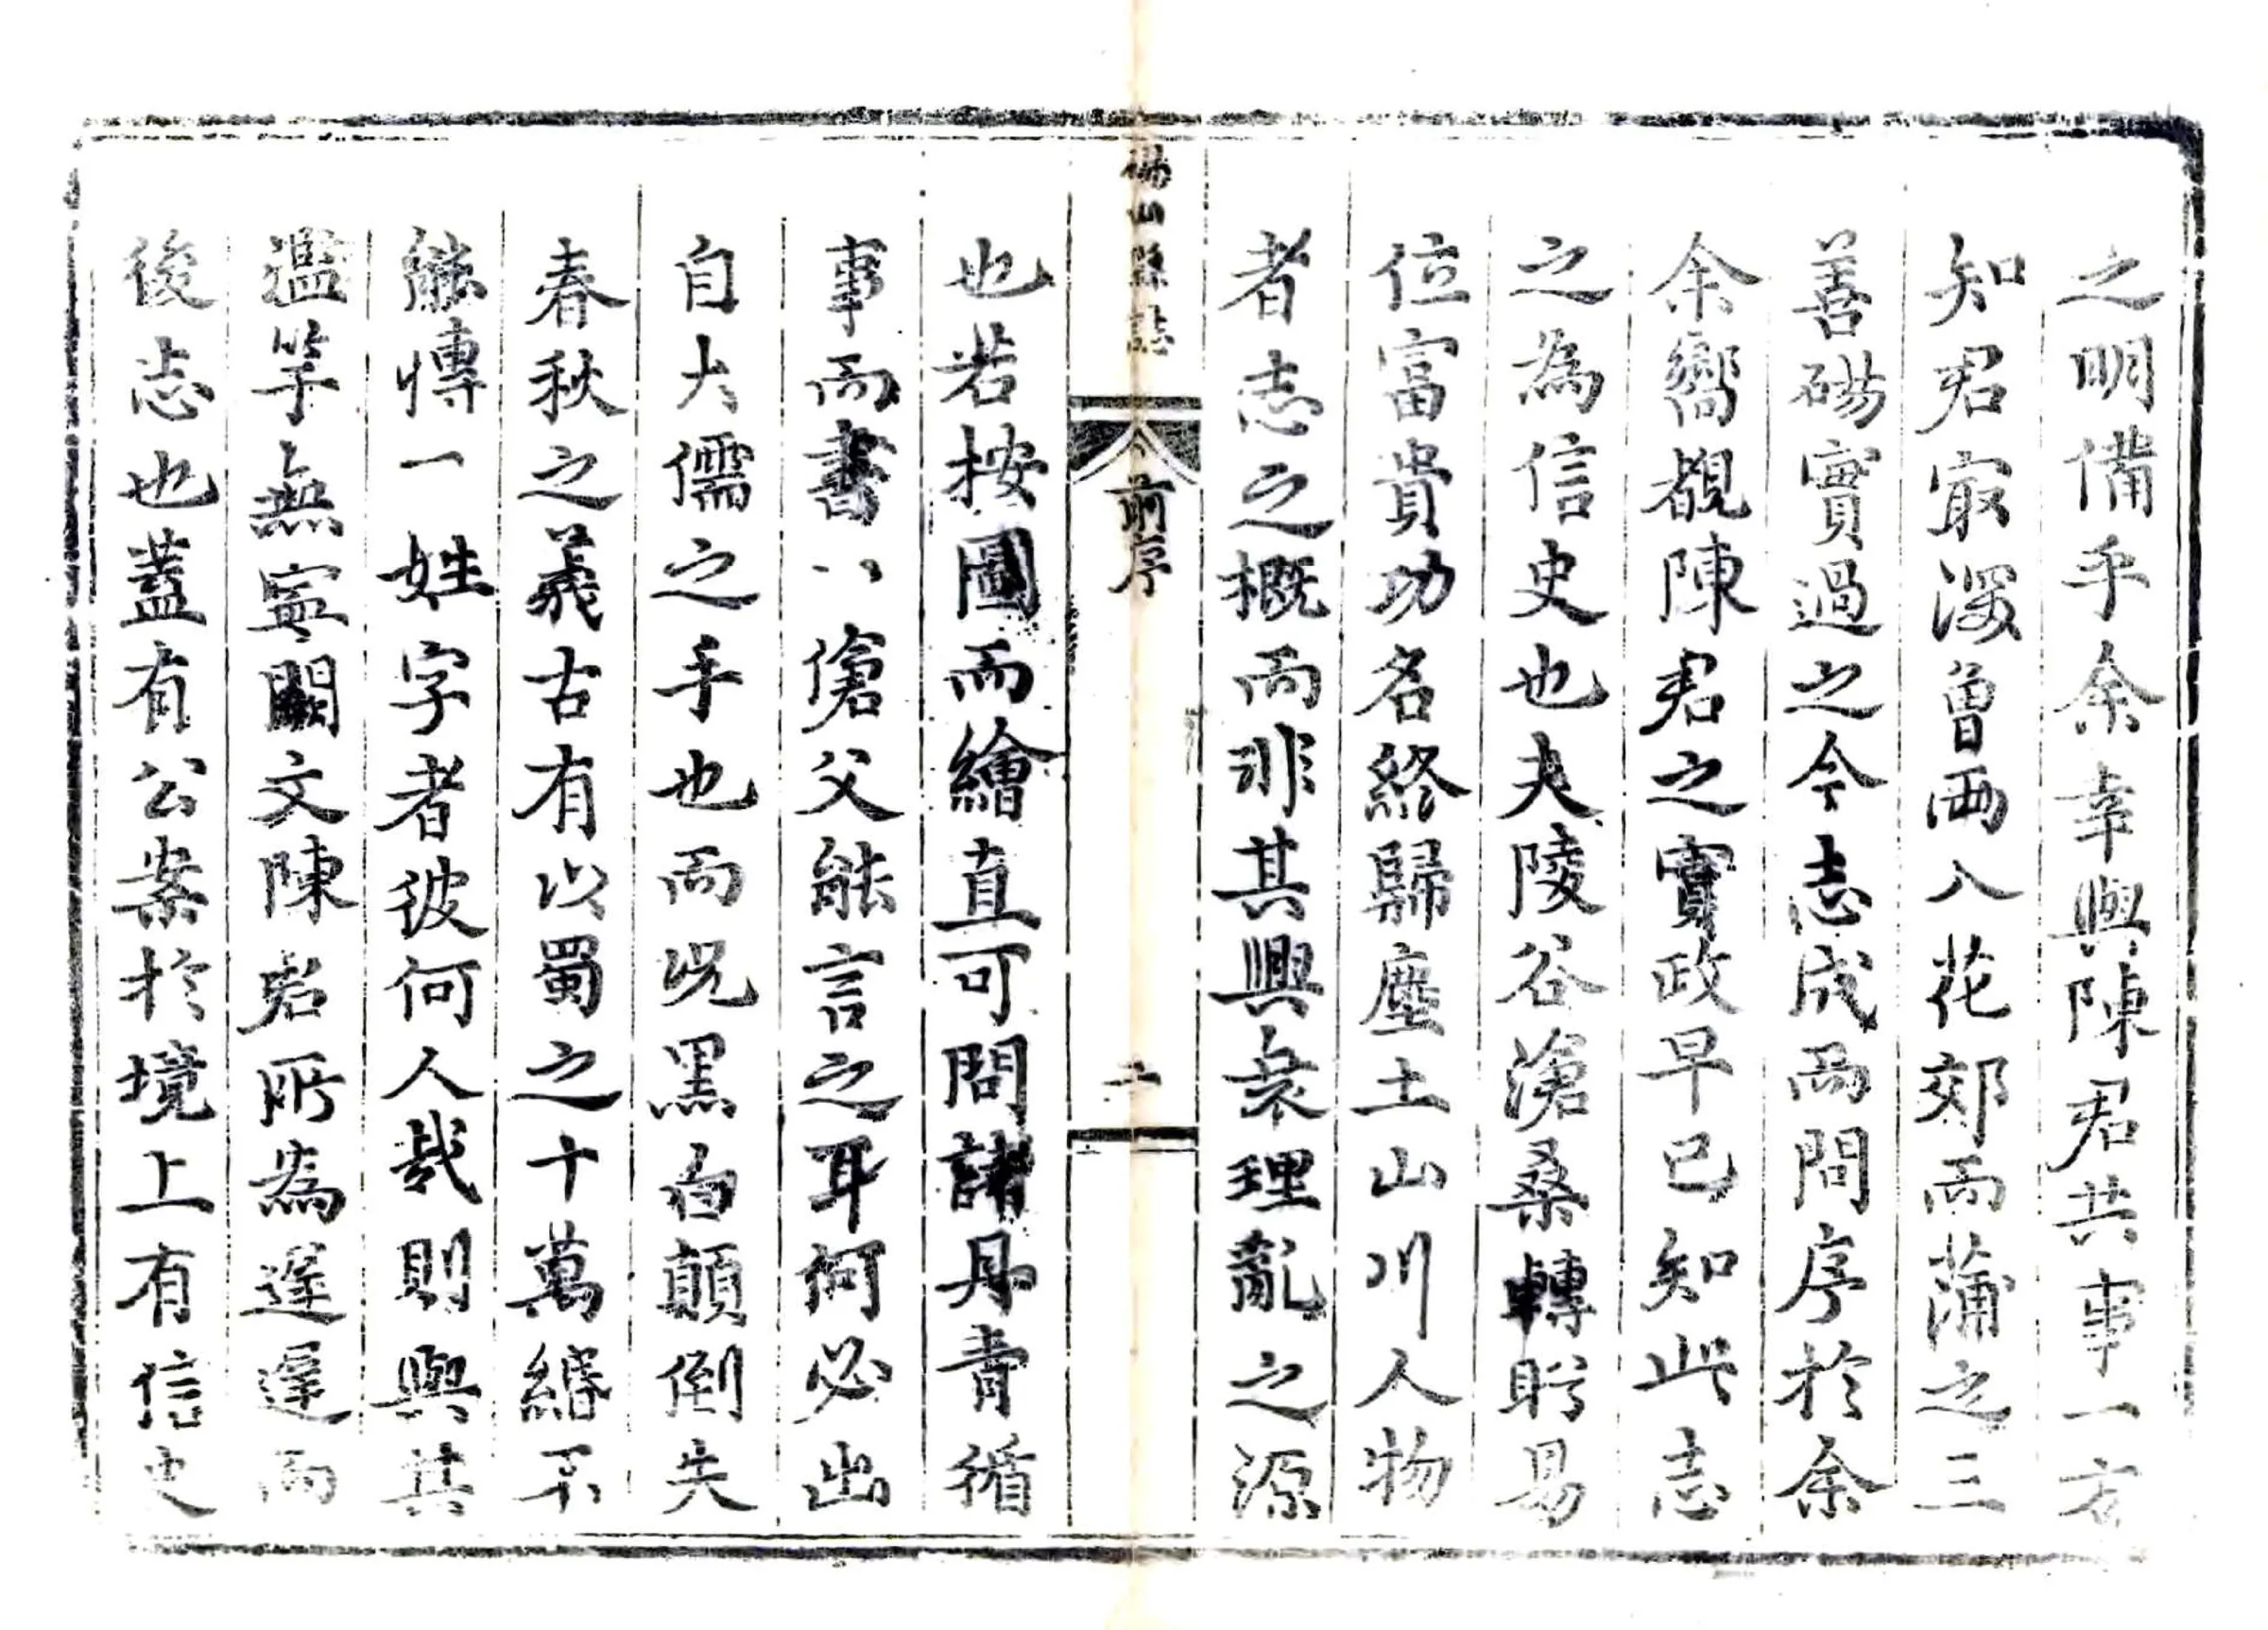 之明備乎余幸與陳君共事一方
知君㝡深魯两八花郊而蒲之三
善碭實過之今志成而問序於余
余嚮覩陳君之實政早已知此志
之為信史也夫陵谷滄桑轉盻易
位富貴功名終歸塵土山川人物
者志之概而非其興衰理亂之源
碭山縣誌
前序
二
也若按圖而繪直可問諸丹青循
事而書八傖父能言之耳何必出
自大儒之手也而况黑白顛倒失
春秋之義古有以蜀之十萬緡不
能慱一姓字者彼何人哉則與其
濫竽無寧闕文陳君所為遲遲而
後志也蓋有公案於境上有信史